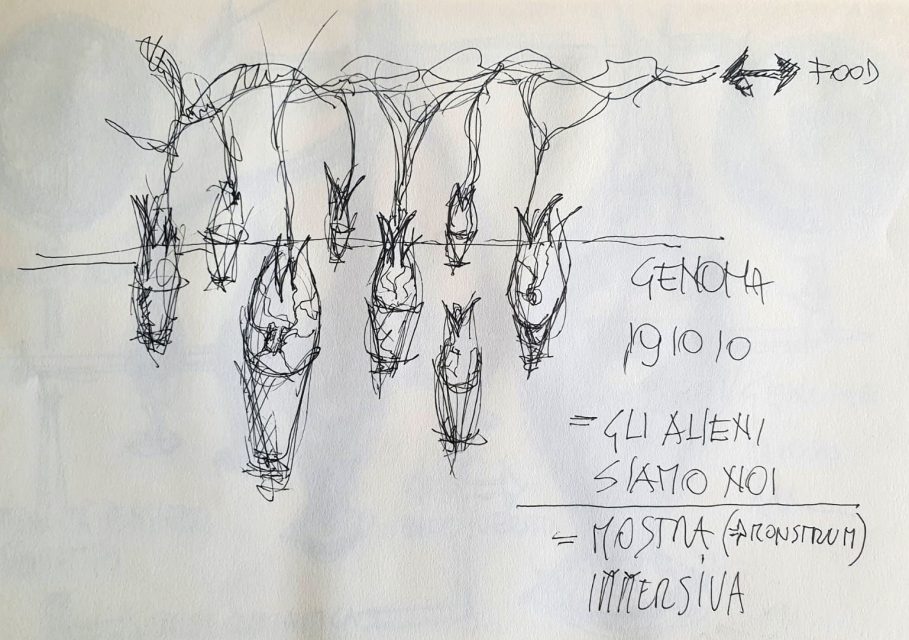 FOOD
GENOMA
191010
= GLI ALIENI
SIAMO NOI
= MOSTRA (⇒MONSTRUM)
IMMERSIVA